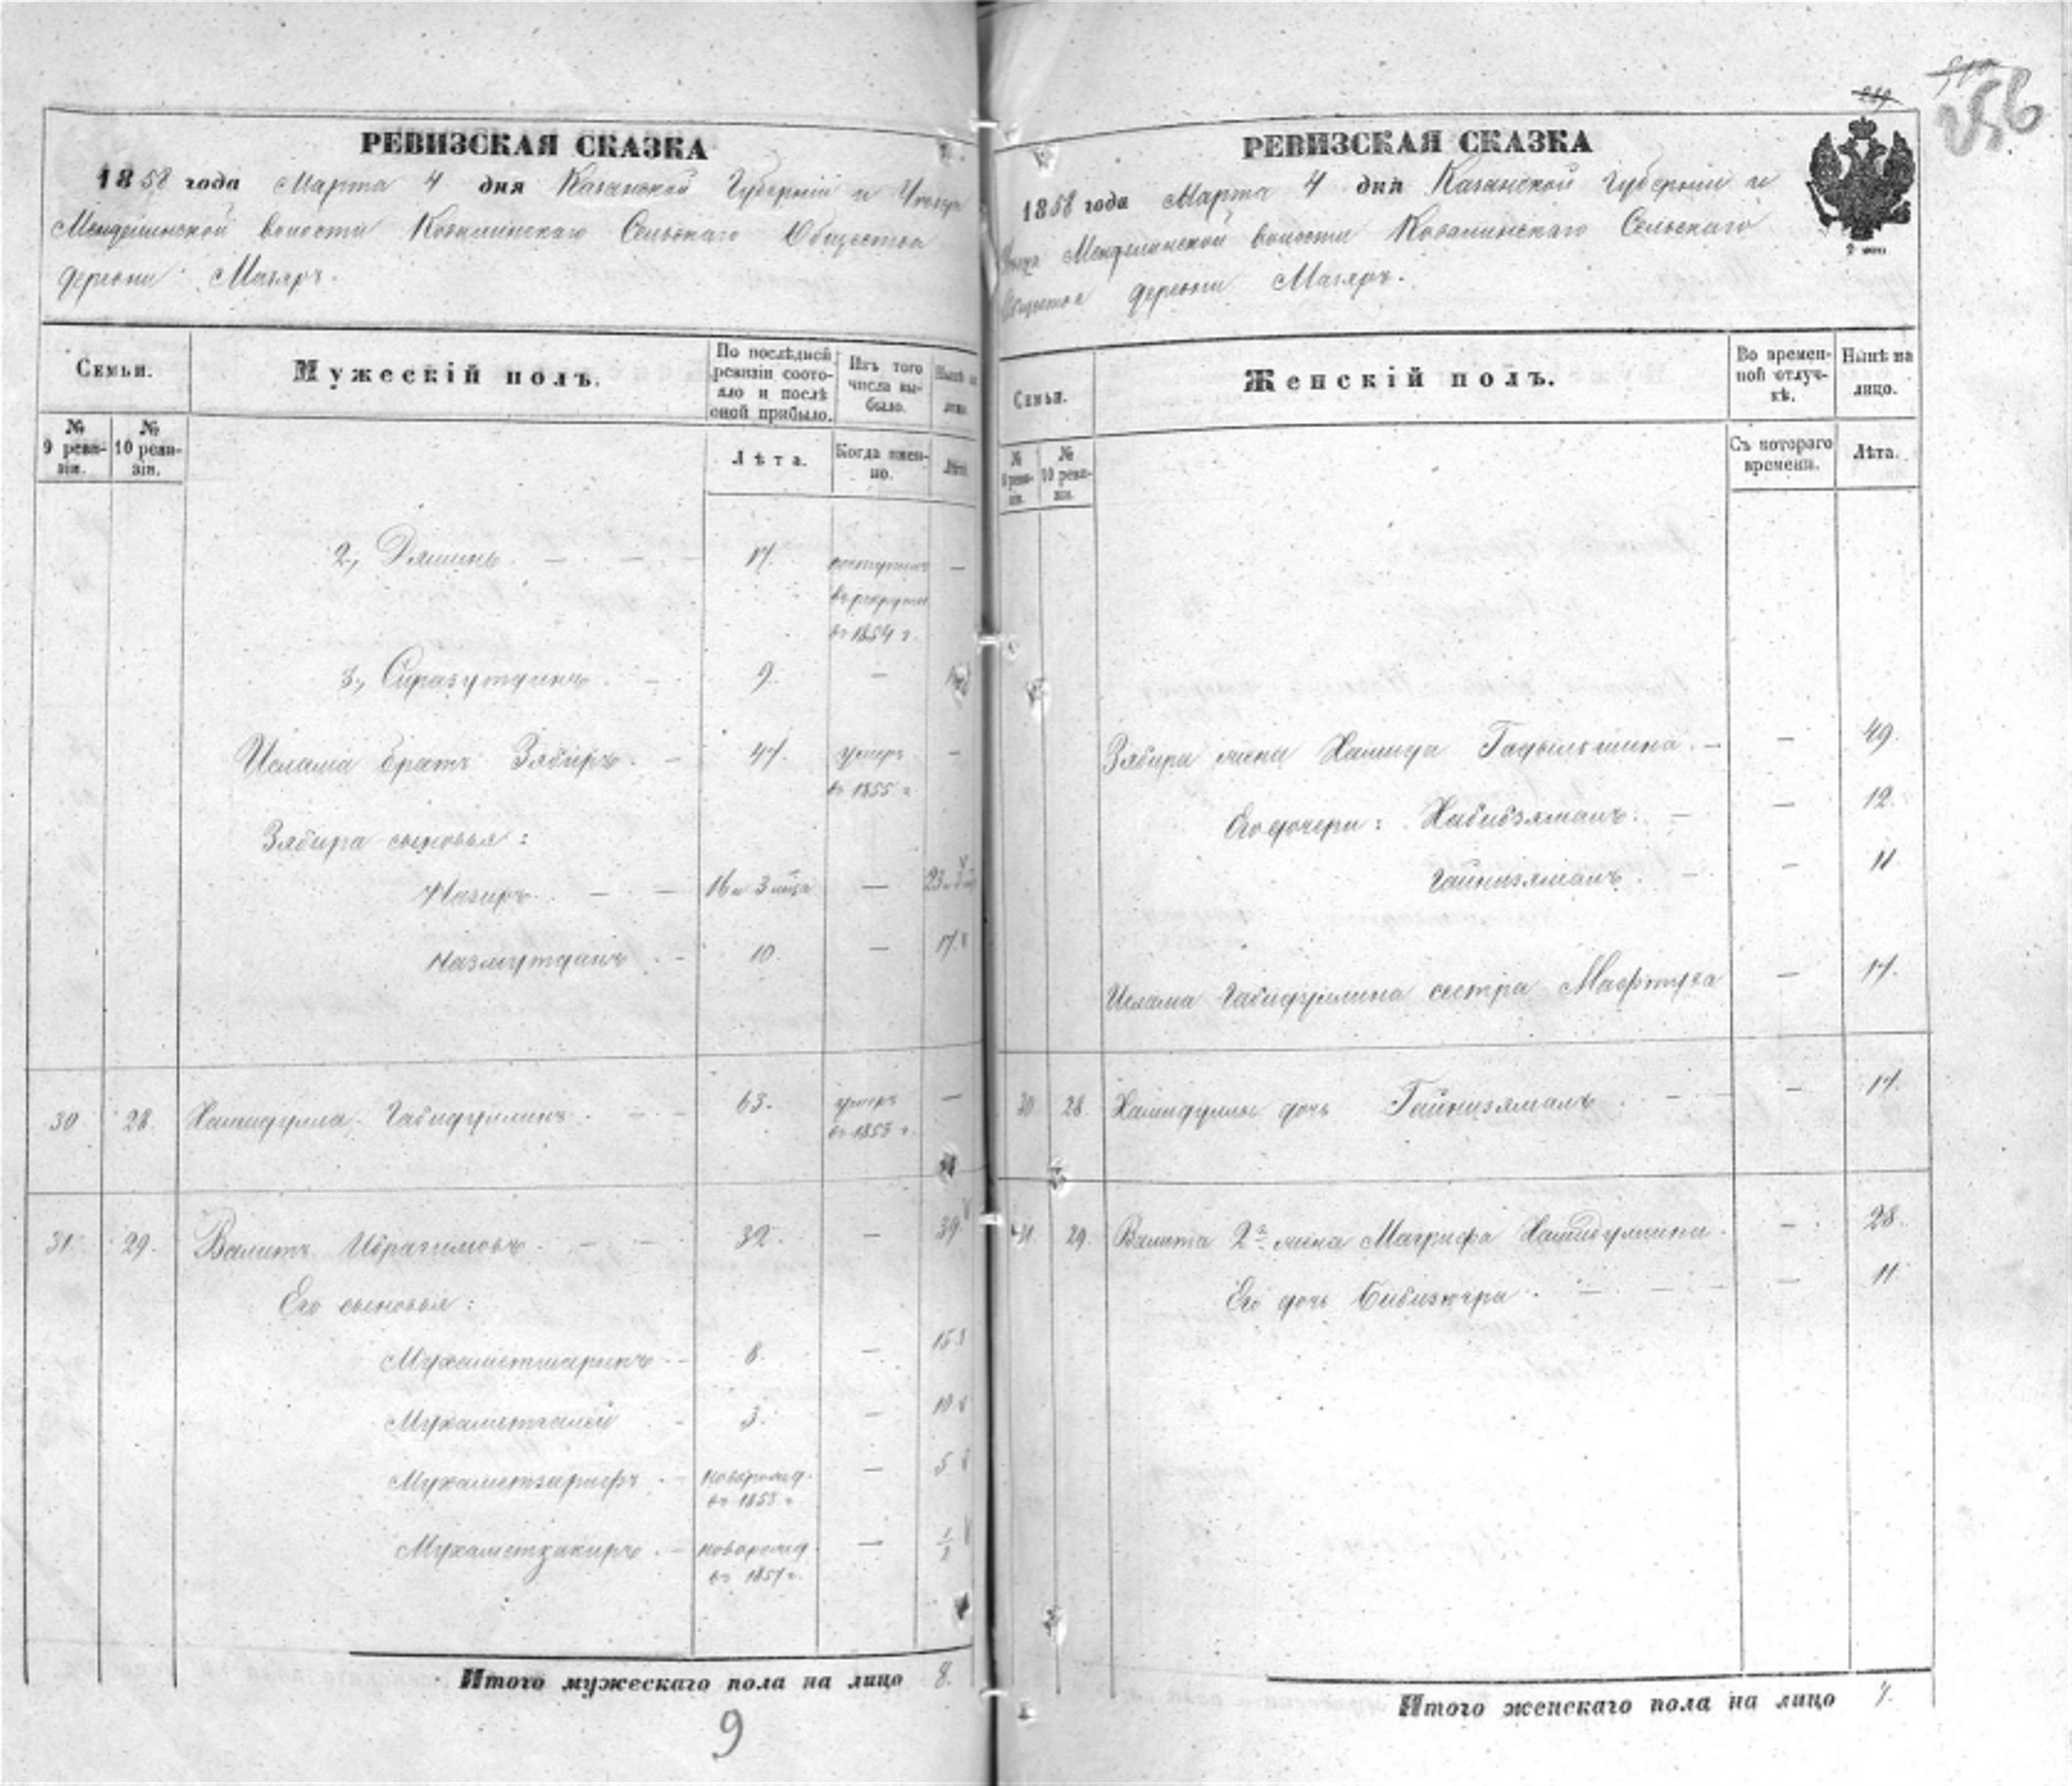 РЕВИЗСКАЯ СКАЗКА
1858 года Марта 4 дня Казанской Губерніи и Уезда
Менделинской волости Ковалинскаго Сельскаго Общества
деревни Магяръ.
Семьи.
Мужескій полъ.
По послѣдней ревизіи состояло и послѣ оной прибыло.
Изъ того числа выбыло.
Нынѣ на лицо.
№ 9 ревизіи.
№ 10 ревизіи.
Лѣта.
Когда именно.
Лѣта.
2, 17. поступилъ —
въ рекруты
въ 1854 г.
3, Сиразутдинъ. — 9. —
Ислама братъ Зябиръ. — 47. умеръ —
въ 1855 г
Зябира сыновья:
Назиръ — — 16 и 3 мѣца —
Назмутдинъ — 10. — 17
30 28 Хамидулла Габидуллинъ — 63. умеръ —
въ 1853 г.
31 29. Валитъ Ибрагимовъ — — 32. — 39
Его сыновья:
Мухаметшарипъ — 8. — 15
Мухаметгалей — 3. — 10
Мухаметзарифъ — новорожд. — 5
въ 1853 г
Мухаметзакиръ — новорожд. — 1/2
въ 1857 г.
Итого мужескаго пола на лицо 8.
9
256
РЕВИЗСКАЯ СКАЗКА
1858 года Марта 4 дня Казанской Губерніи и
Уезда Менделинской волости Ковалинскаго Сельскаго
Общества деревни Магяръ.
Семьи.
Женскій полъ.
Во временной отлучкѣ.
Нынѣ на лицо.
№ 9 ревизіи.
№ 10 ревизіи.
Съ котораго времени.
Лѣта.
Зябира жена Хамида — — 49.
Его дочери: Хабибзямалъ. — — 12.
Гайнизямалъ. — — 11
Ислама Габидуллина сестра Мафтуха — 17.
30 28. Хамидуллы дочь Гайнизямалъ — — 17.
31 29. Валита 2я жена Магрифа Хамидуллина — 28.
Его дочь Бибизюгра — — 11
Итого женскаго пола на лицо 7.